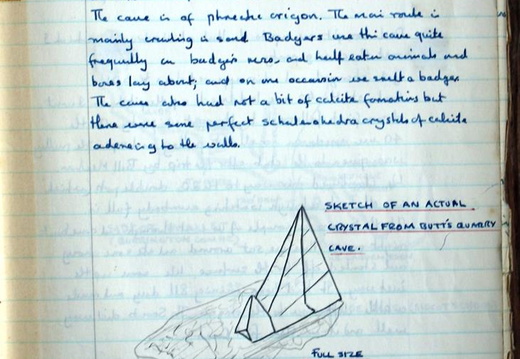 The cave is of phreatic origon. The main route is
mainly crawling in sand. Badgers use this cave quite
frequently as badgers nests, and half eaten animals and
bones lay about, and on one occasion we smelt a badger.
The caves also had not a bit of calcite formations but
there were some perfect schalenohedra crystals of calcite
adereing to the walls.
SKETCH OF AN ACTUAL
CRYSTAL FROM BUTT'S QUARRY
CAVE.
FULL SIZE